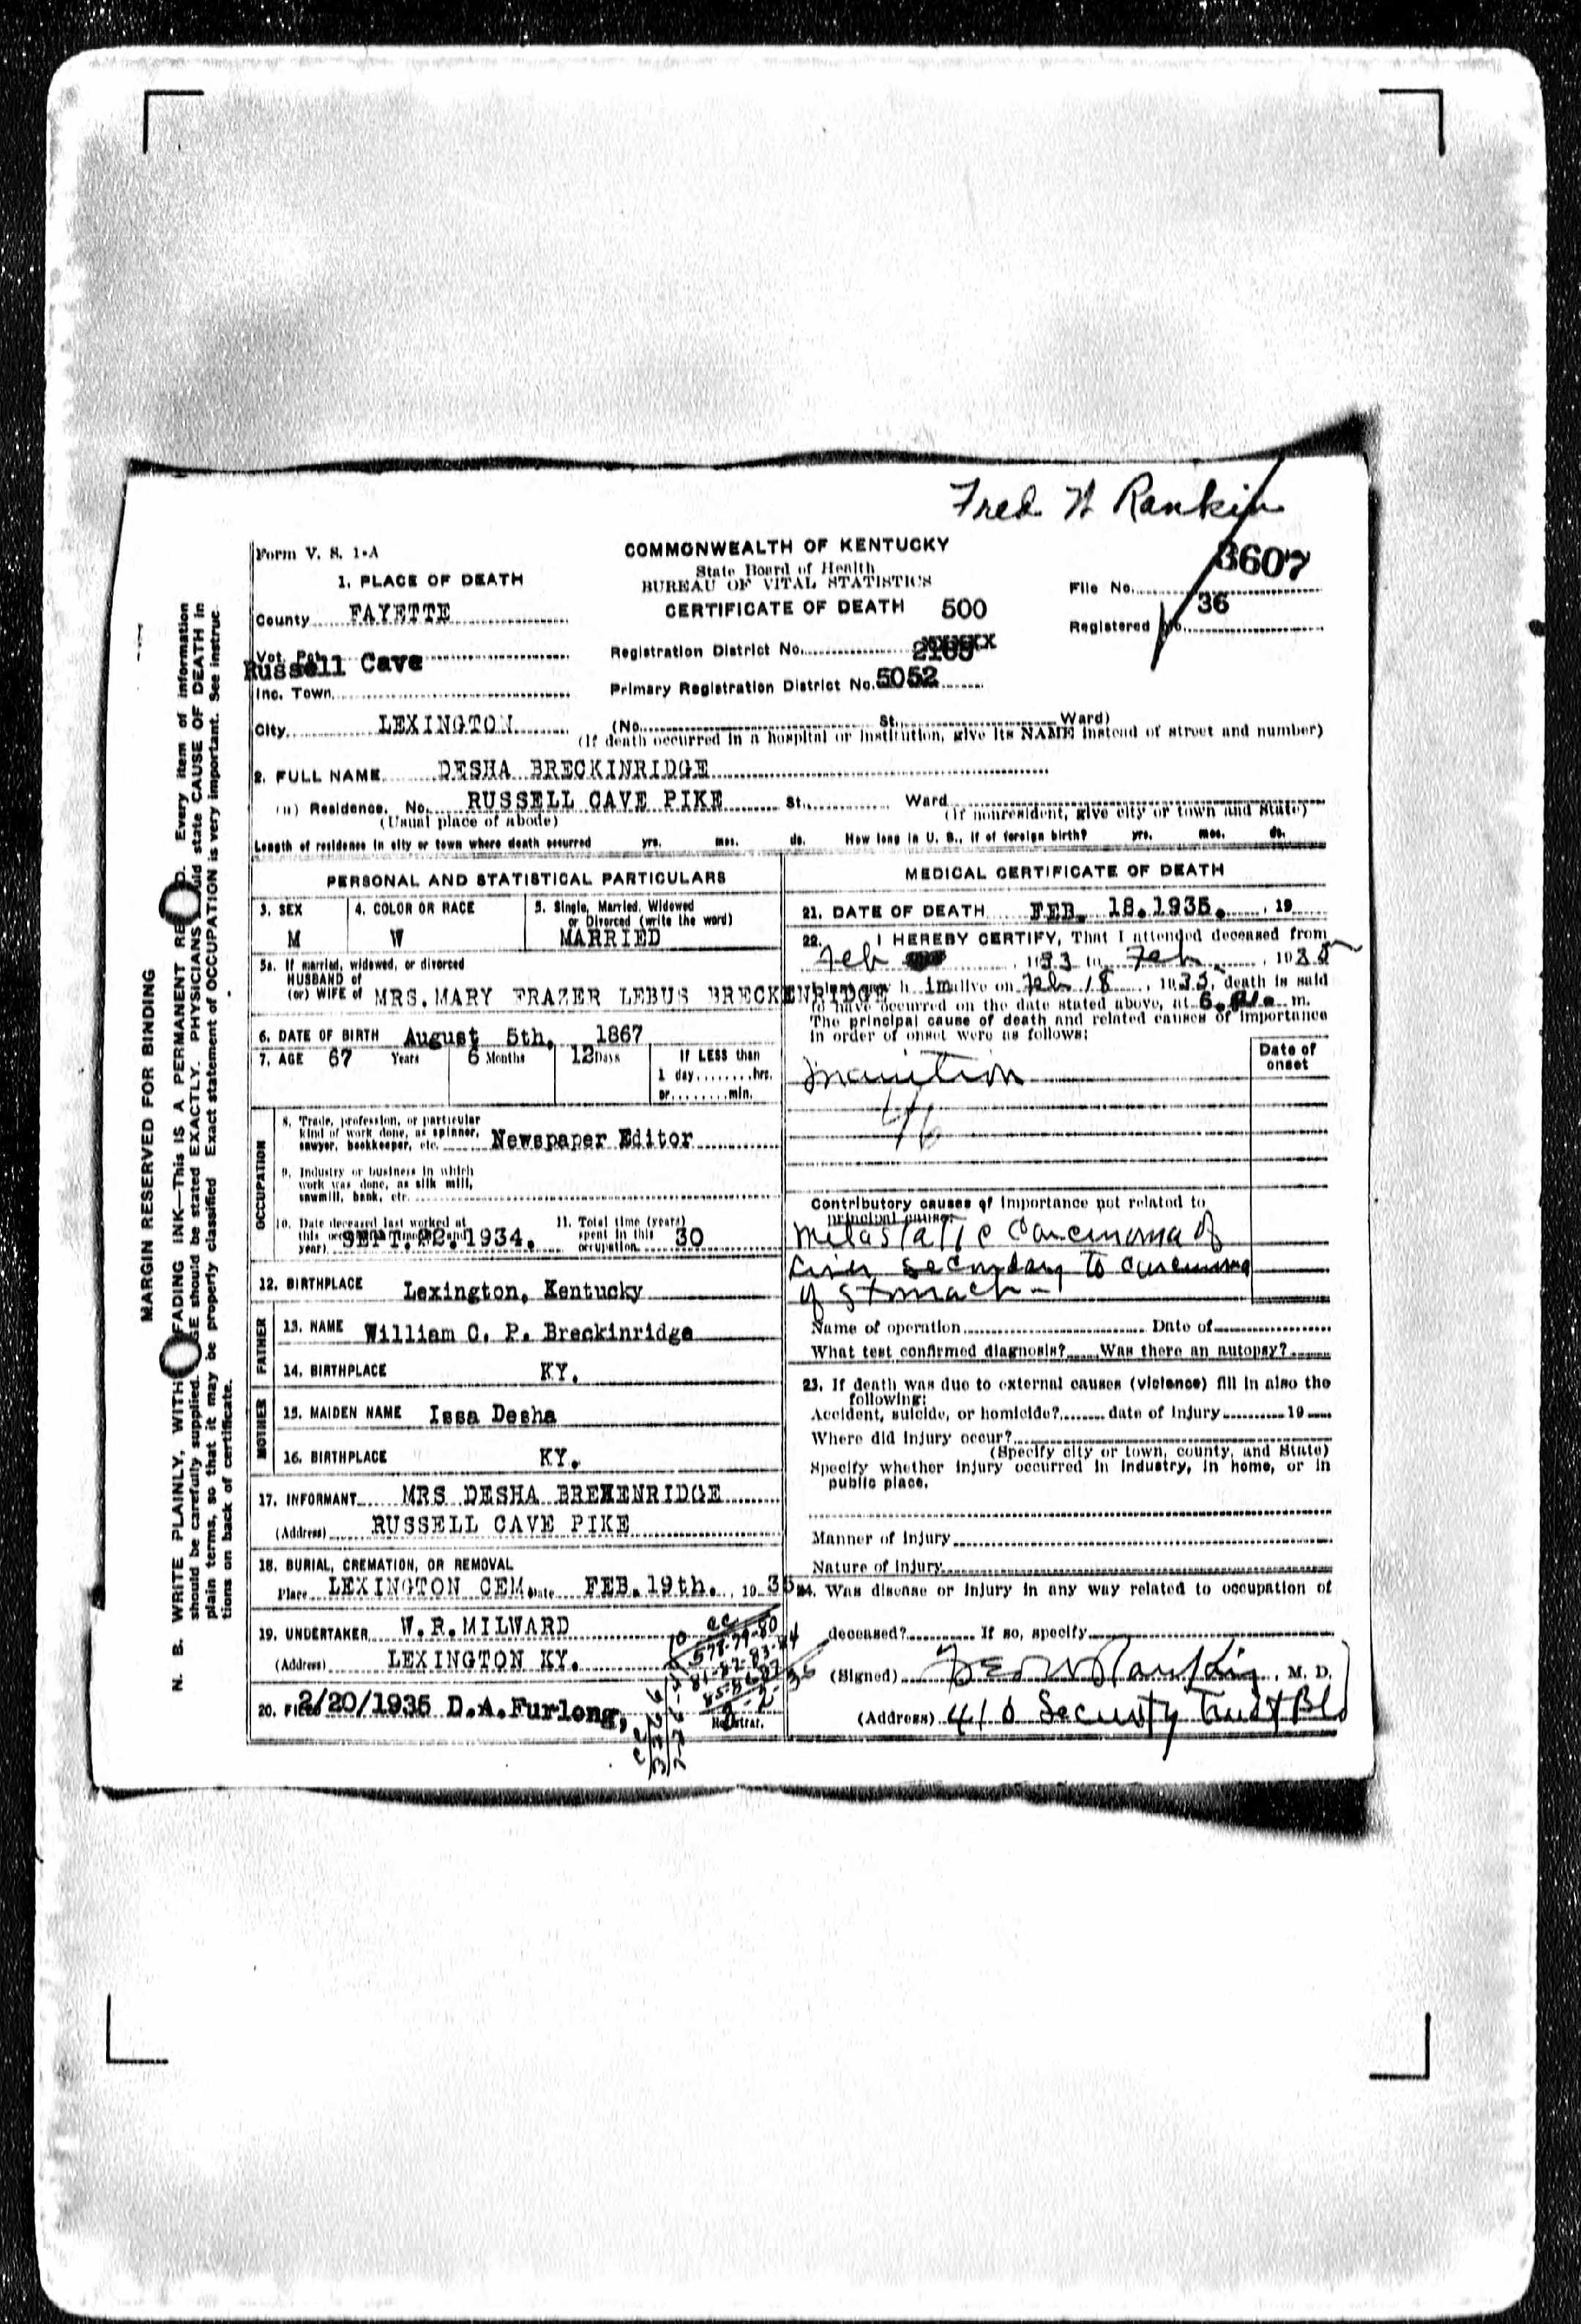 Fred W Rankin
Form V. S. 1-A
COMMONWEALTH OF KENTUCKY
State Board of Health
BUREAU OF VITAL STATISTICS
CERTIFICATE OF DEATH 500
1. PLACE OF DEATH
File No. 3607
County FAYETTE
Registered No. 36
Vot. Pct.
Russell Cave
Registration District No.
Inc. Town
Primary Registration District No. 5052
City LEXINGTON (No. St. Ward)
(If death occurred in a hospital or institution, give its NAME instead of street and number)
2. FULL NAME DESHA BRECKINRIDGE
(a) Residence. No. RUSSELL CAVE PIKE St. Ward
(Usual place of abode) (If nonresident, give city or town and State)
Length of residence in city or town where death occurred yrs. mos. ds. How long in U. S., if of foreign birth? yrs. mos. ds.
PERSONAL AND STATISTICAL PARTICULARS
3. SEX
M
4. COLOR OR RACE
W
5. Single, Married, Widowed
or Divorced (write the word)
MARRIED
5a. If married, widowed, or divorced
HUSBAND of
(or) WIFE of MRS. MARY FRAZER LEBUS BRECKENRIDGE
6. DATE OF BIRTH August 5th, 1867
7. AGE 67 Years 6 Months 12 Days
If LESS than
1 day........hrs.
or........min.
OCCUPATION
8. Trade, profession, or particular
kind of work done, as spinner,
sawyer, bookkeeper, etc. Newspaper Editor
9. Industry or business in which
work was done, as silk mill,
sawmill, bank, etc.
10. Date deceased last worked at
this occupation (month and
year) SEPT. 22. 1934.
11. Total time (years)
spent in this
occupation 30
12. BIRTHPLACE Lexington, Kentucky
FATHER
13. NAME William C. P. Breckinridge
14. BIRTHPLACE KY.
MOTHER
15. MAIDEN NAME Issa Desha
16. BIRTHPLACE KY.
17. INFORMANT MRS DESHA BREKENRIDGE
(Address) RUSSELL CAVE PIKE
18. BURIAL, CREMATION, OR REMOVAL
Place LEXINGTON CEM. Date FEB. 19th., 1935
19. UNDERTAKER W. R. MILWARD
(Address) LEXINGTON KY.
20. FILED 2/20/1935 D.A.Furlong,
Registrar.
MEDICAL CERTIFICATE OF DEATH
21. DATE OF DEATH FEB. 18. 1935. , 19
22. I HEREBY CERTIFY, That I attended deceased from
Feb , 1933 to Feb , 1935
h im alive on Feb 18 , 1935, death is said
to have occurred on the date stated above, at 6 m.
The principal cause of death and related causes of importance
in order of onset were as follows:
Date of
onset
Inanition
Contributory causes of importance not related to
principal cause:
Metastatic Carcinoma of
Liver secondary to carcinoma
of Stomach-
Name of operation Date of
What test confirmed diagnosis? Was there an autopsy?
23. If death was due to external causes (violence) fill in also the
following:
Accident, suicide, or homicide? date of Injury 19
Where did injury occur?
(Specify city or town, county, and State)
Specify whether injury occurred in industry, in home, or in
public place.
Manner of injury
Nature of injury
24. Was disease or injury in any way related to occupation of
deceased? If so, specify
(Signed) Fred W Rankin, M. D.
(Address) 410 Security Trust Bld
MARGIN RESERVED FOR BINDING
N. B. WRITE PLAINLY, WITH FADING INK—This IS A PERMANENT RE D. Every item of information
should be carefully supplied. GE should be stated EXACTLY. PHYSICIANS should state CAUSE OF DEATH in
plain terms, so that it may be properly classified. Exact statement of OCCUPATION is very important. See instruc
tions on back of certificate.